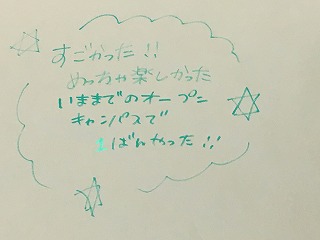 すごかった!!
めっちゃ楽しかった
いままでのオープン
キャンパスで
1ばんやった!!